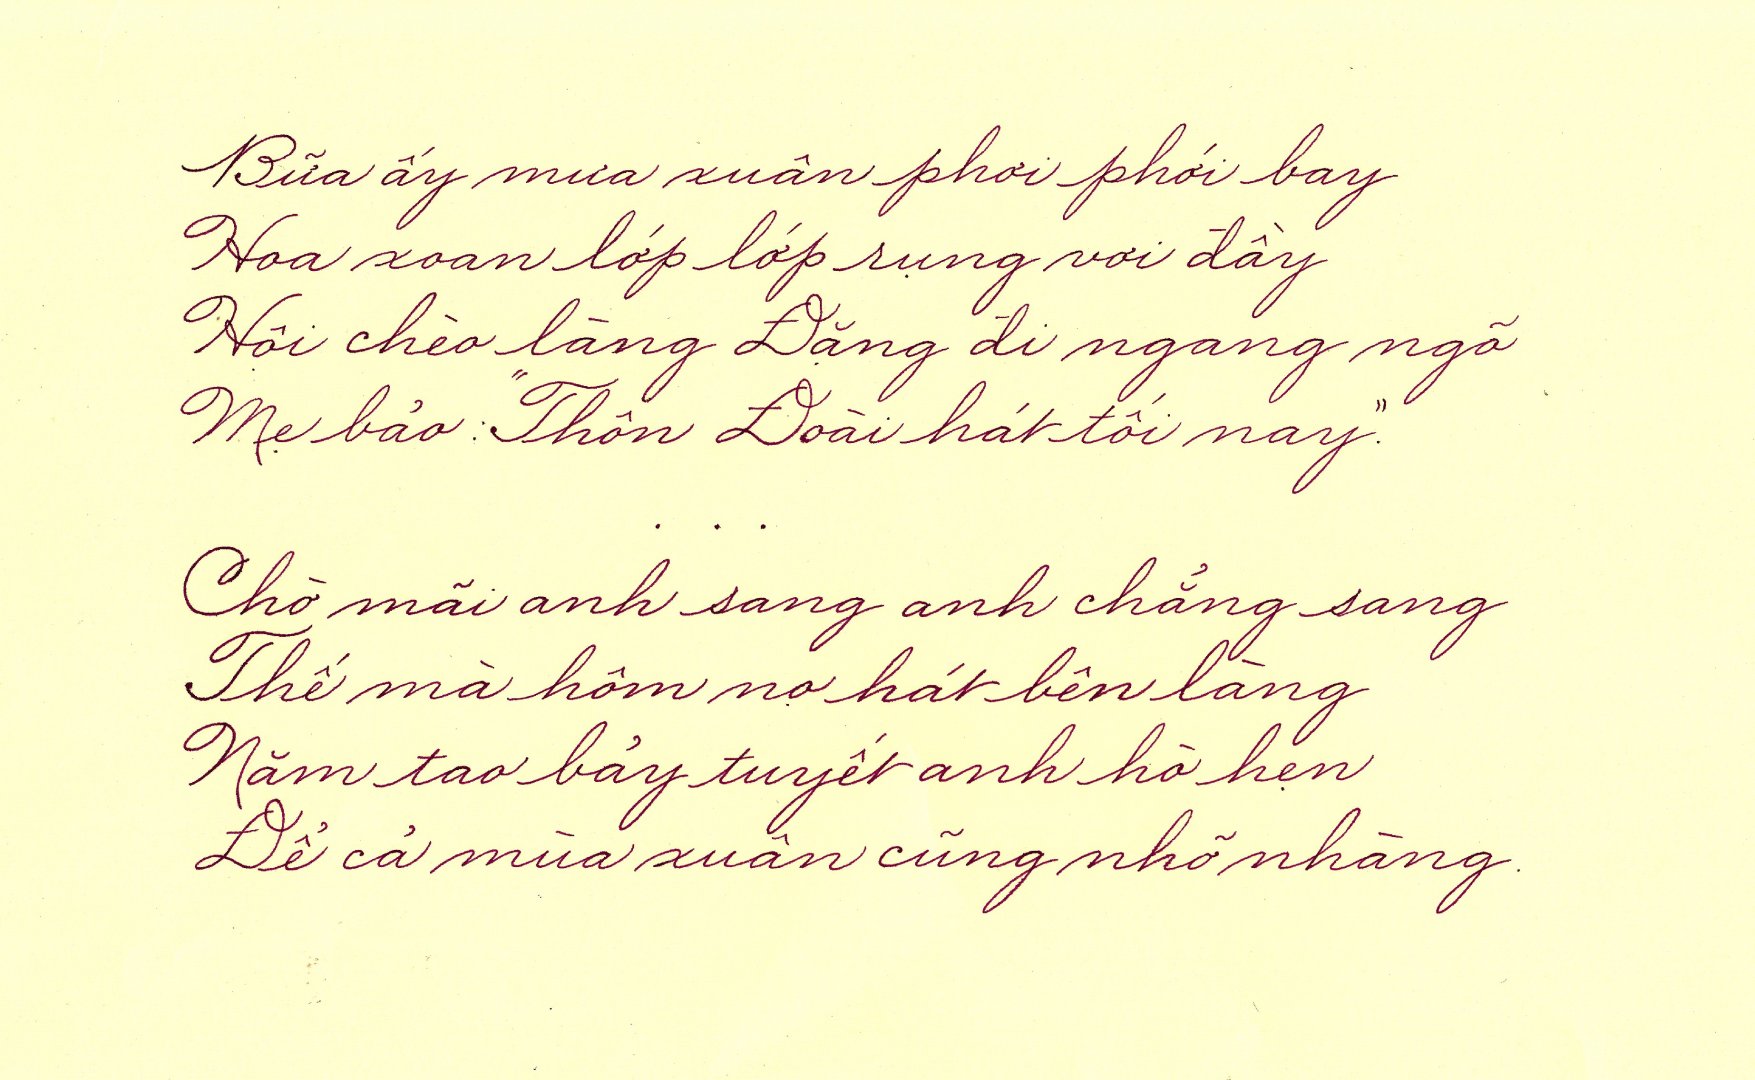 Bữa ấy mưa xuân phơi phới bay
Hoa xoan lớp lớp rụng vơi đầy
Hội chèo làng Đặng đi ngang ngõ
Mẹ bảo: "Thôn Đoài hát tối nay".
. . .
Chờ mãi anh sang anh chẳng sang
Thế mà hôm nọ hát bên làng
Năm tao bảy tuyết anh hò hẹn
Để cả mùa xuân cũng nhỡ nhàng.